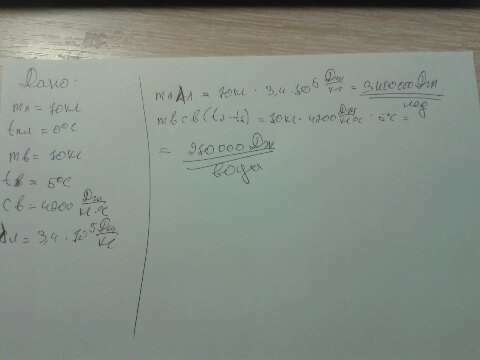 Дано:
mл = 10кг
tпл = 0°C
mв = 10кг
tв = 5°C
Cв = 4200 Дж/кг·°C
λл = 3,4 · 10⁵ Дж/кг
mлλл = 10кг · 3,4 · 10⁵ Дж/кг = 3400000 Дж
лёд
mвcв(t₂-t₁) = 10кг · 4200 Дж/кг·°C · 5°C =
= 210000 Дж
вода